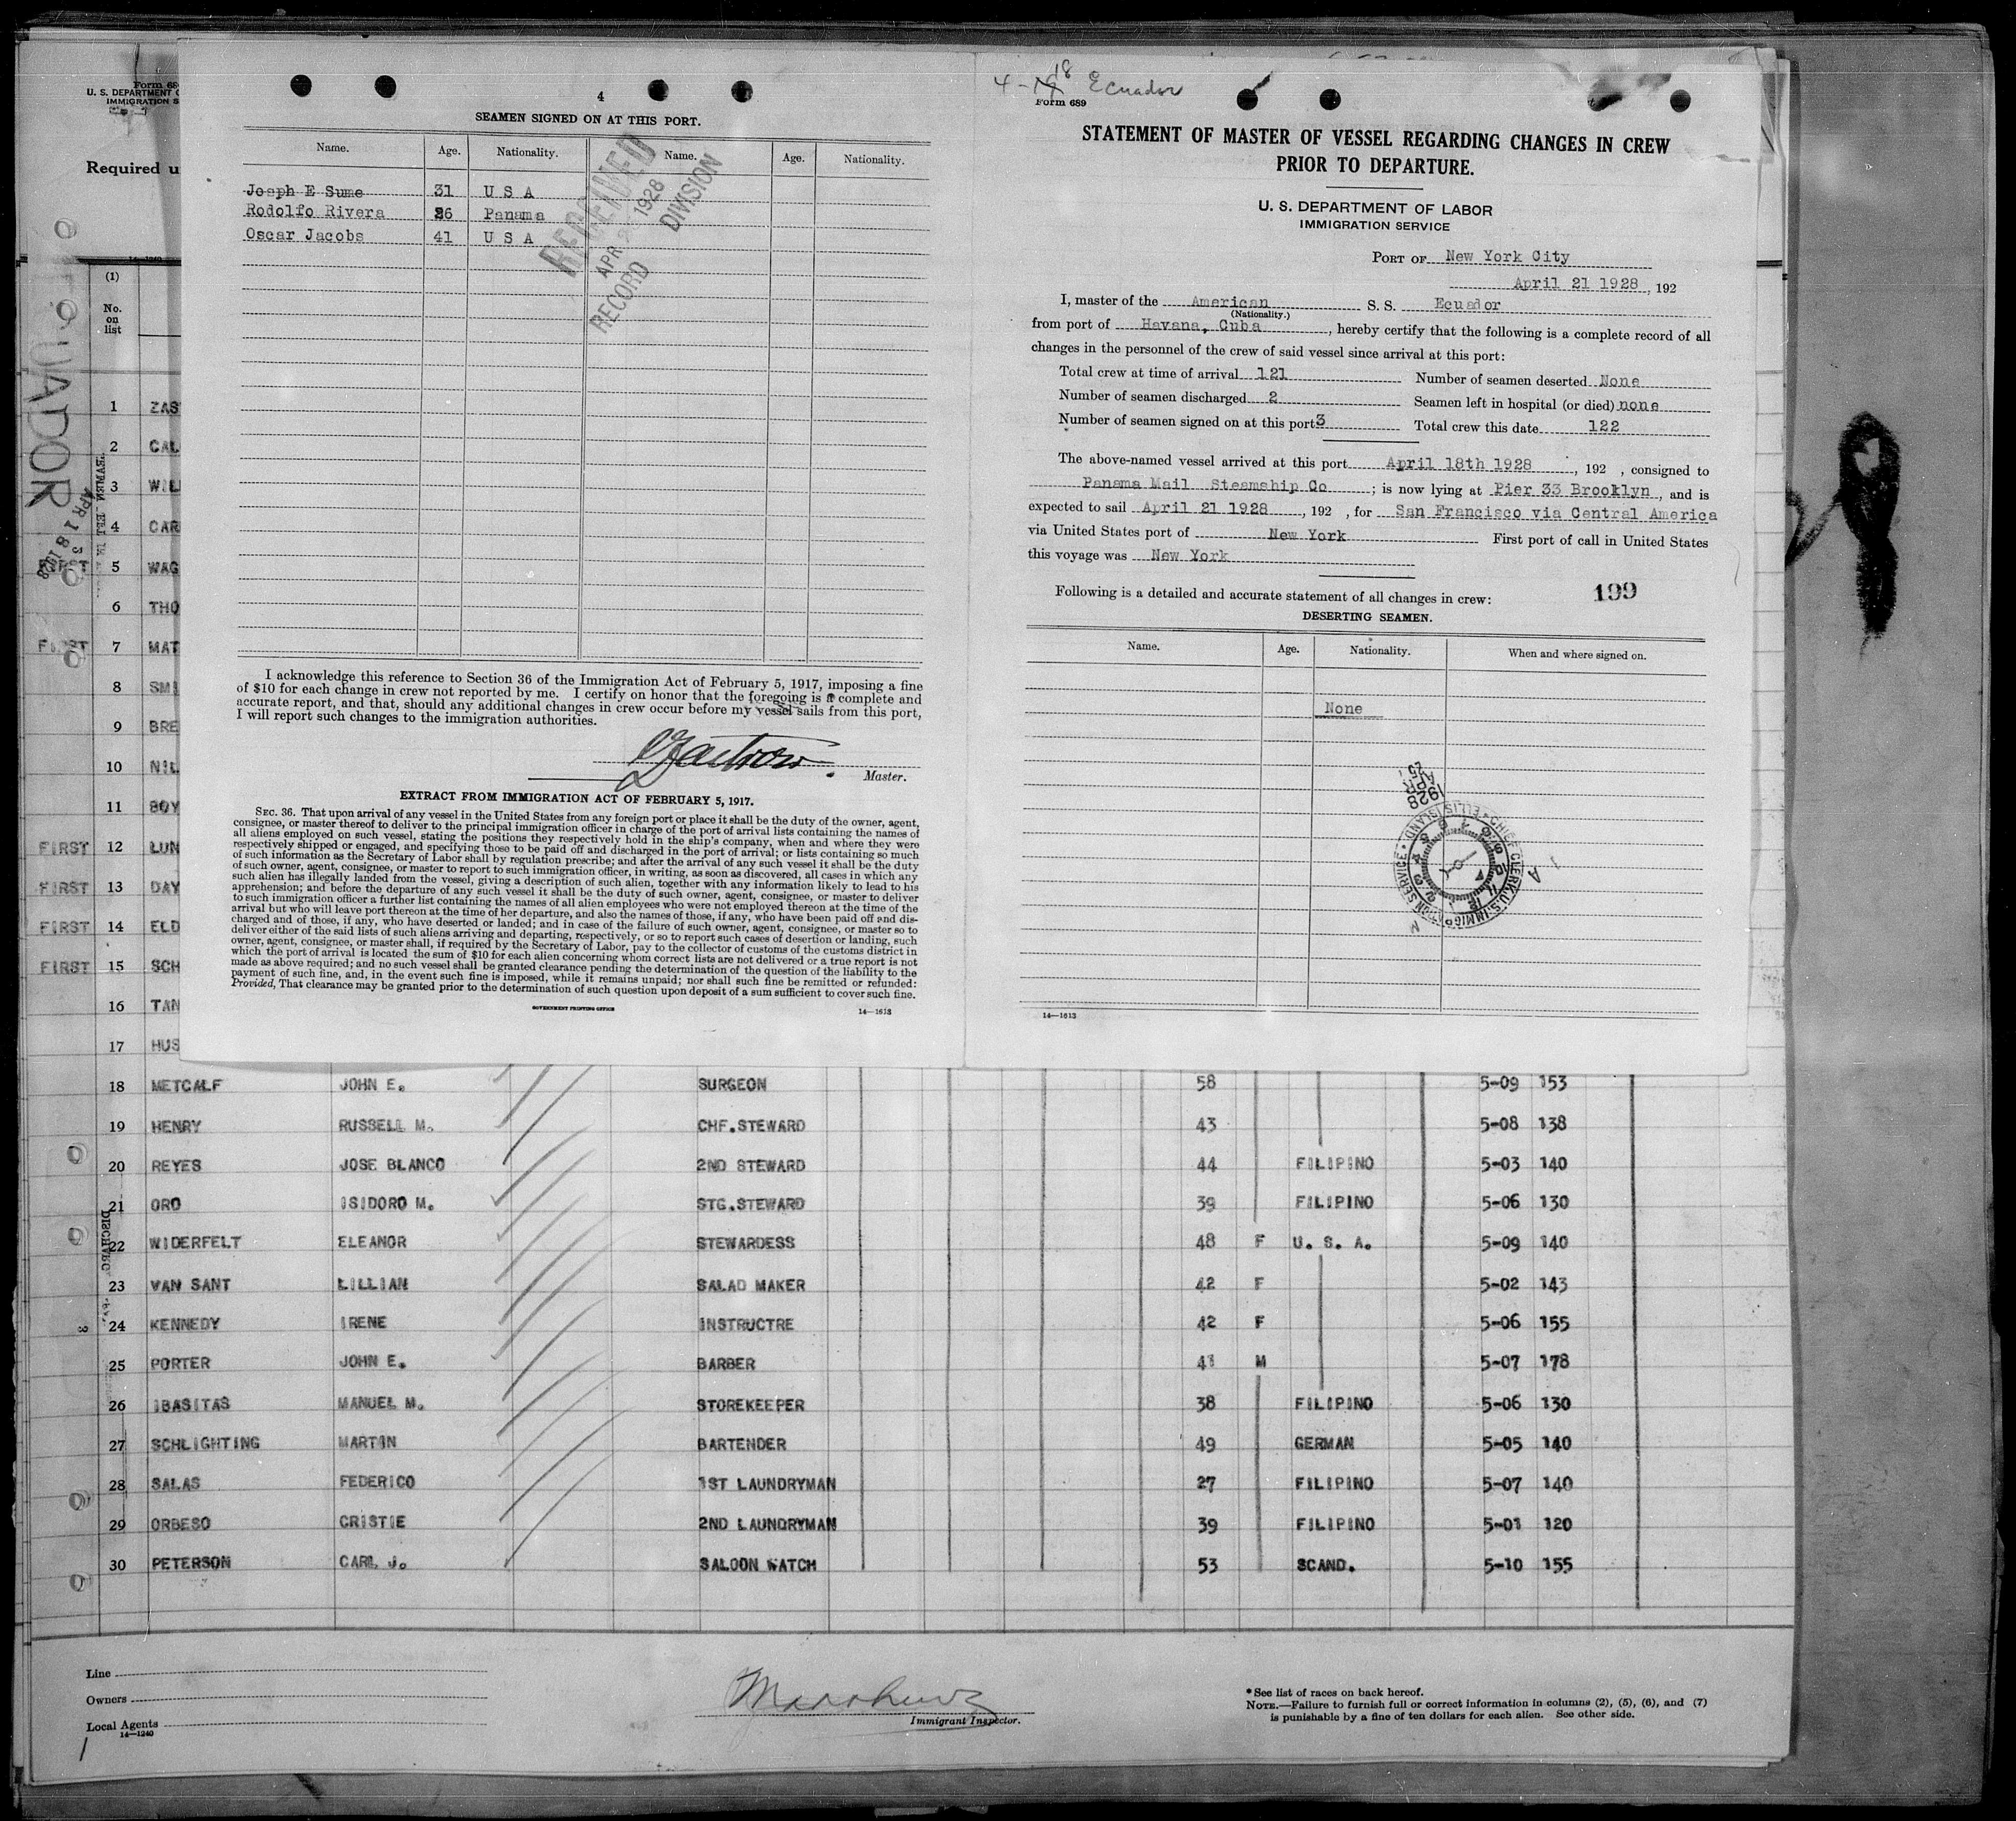 4
SEAMEN SIGNED ON AT THIS PORT.
Name. Age. Nationality. Name. Age. Nationality.
Joeph E Sume 31 U S A
Rodolfo Rivera 26 Panama
Oscar Jacobs 41 U S A
RECEIVED
APR 1928
RECORD DIVISION
I acknowledge this reference to Section 36 of the Immigration Act of February 5, 1917, imposing a fine
of $10 for each change in crew not reported by me. I certify on honor that the foregoing is a complete and
accurate report, and that, should any additional changes in crew occur before my vessel sails from this port,
I will report such changes to the immigration authorities.
Master.
EXTRACT FROM IMMIGRATION ACT OF FEBRUARY 5, 1917.
SEC. 36. That upon arrival of any vessel in the United States from any foreign port or place it shall be the duty of the owner, agent,
consignee, or master thereof to deliver to the principal immigration officer in charge of the port of arrival lists containing the names of
all aliens employed on such vessel, stating the positions they respectively hold in the ship's company, when and where they were
respectively shipped or engaged, and specifying those to be paid off and discharged in the port of arrival; or lists containing so much
of such information as the Secretary of Labor shall by regulation prescribe; and after the arrival of any such vessel it shall be the duty
of such owner, agent, consignee, or master to report to such immigration officer, in writing, as soon as discovered, all cases in which any
such alien has illegally landed from the vessel, giving a description of such alien, together with any information likely to lead to his
apprehension; and before the departure of any such vessel it shall be the duty of such owner, agent, consignee, or master to deliver
to such immigration officer a further list containing the names of all alien employees who were not employed thereon at the time of the
arrival but who will leave port thereon at the time of her departure, and also the names of those, if any, who have been paid off and dis-
charged and of those, if any, who have deserted or landed; and in case of the failure of such owner, agent, consignee, or master so to
deliver either of the said lists of such aliens arriving and departing, respectively, or so to report such cases of desertion or landing, such
owner, agent, consignee, or master shall, if required by the Secretary of Labor, pay to the collector of customs of the customs district in
which the port of arrival is located the sum of $10 for each alien concerning whom correct lists are not delivered or a true report is not
made as above required; and no such vessel shall be granted clearance pending the determination of the question of the liability to the
payment of such fine, and, in the event such fine is imposed, while it remains unpaid; nor shall such fine be remitted or refunded:
Provided, That clearance may be granted prior to the determination of such question upon deposit of a sum sufficient to cover such fine.
GOVERNMENT PRINTING OFFICE 14—1613
4-18 Ecuador
Form 689
STATEMENT OF MASTER OF VESSEL REGARDING CHANGES IN CREW
PRIOR TO DEPARTURE.
U. S. DEPARTMENT OF LABOR
IMMIGRATION SERVICE
PORT OF New York City
April 21 1928, 192
I, master of the American S. S. Ecuador
(Nationality.)
from port of Havana, Cuba, hereby certify that the following is a complete record of all
changes in the personnel of the crew of said vessel since arrival at this port:
Total crew at time of arrival 121 Number of seamen deserted None
Number of seamen discharged 2 Seamen left in hospital (or died) none
Number of seamen signed on at this port 3 Total crew this date 122
The above-named vessel arrived at this port April 18th 1928, 192 , consigned to
Panama Mail Steamship Co ; is now lying at Pier 33 Brooklyn, and is
expected to sail April 21 1928, 192 , for San Francisco via Central America
via United States port of New York First port of call in United States
this voyage was New York
Following is a detailed and accurate statement of all changes in crew: 199
DESERTING SEAMEN.
Name. Age. Nationality. When and where signed on.
None
1928 APR 25
CHIEF CLERK, U.S. IMMIGRATION SERVICE ELLIS ISLAND
14—1613
Form 689
U. S. DEPARTMENT
IMMIGRATION S
Required u
14-1240
(1)
No. on list
ECUADOR
APR 18 1928
1 ZAS
2 CAL
3 WIL
4 CAR
FIRST 5 WAG
6 THO
FIRST 7 MAT
8 SMI
9 BRE
10 NIL
11 BOY
FIRST 12 LUN
FIRST 13 DAY
FIRST 14 ELD
FIRST 15 SCH
16 TAN
17 HUS
18 METCALF JOHN E. SURGEON 58 5-09 153
19 HENRY RUSSELL M. CHF.STEWARD 43 5-08 138
20 REYES JOSE BLANCO 2ND STEWARD 44 FILIPINO 5-03 140
21 ORO ISIDORO M. STG.STEWARD 39 FILIPINO 5-06 130
22 WIDERFELT ELEANOR STEWARDESS 48 F U. S. A. 5-09 140
23 VAN SANT LILLIAN SALAD MAKER 42 F 5-02 143
24 KENNEDY IRENE INSTRUCTRE 42 F 5-06 155
25 PORTER JOHN E. BARBER 41 M 5-07 178
26 IBASITAS MANUEL M. STOREKEEPER 38 FILIPINO 5-06 130
27 SCHLIGHTING MARTIN BARTENDER 49 GERMAN 5-05 140
28 SALAS FEDERICO 1ST LAUNDRYMAN 27 FILIPINO 5-07 140
29 ORBESO CRISTIE 2ND LAUNDRYMAN 39 FILIPINO 5-01 120
30 PETERSON CARL J. SALOON WATCH 53 SCAND. 5-10 155
Line
Owners
Local Agents
14—1240
Immigrant Inspector.
*See list of races on back hereof.
NOTE.—Failure to furnish full or correct information in columns (2), (5), (6), and (7)
is punishable by a fine of ten dollars for each alien. See other side.